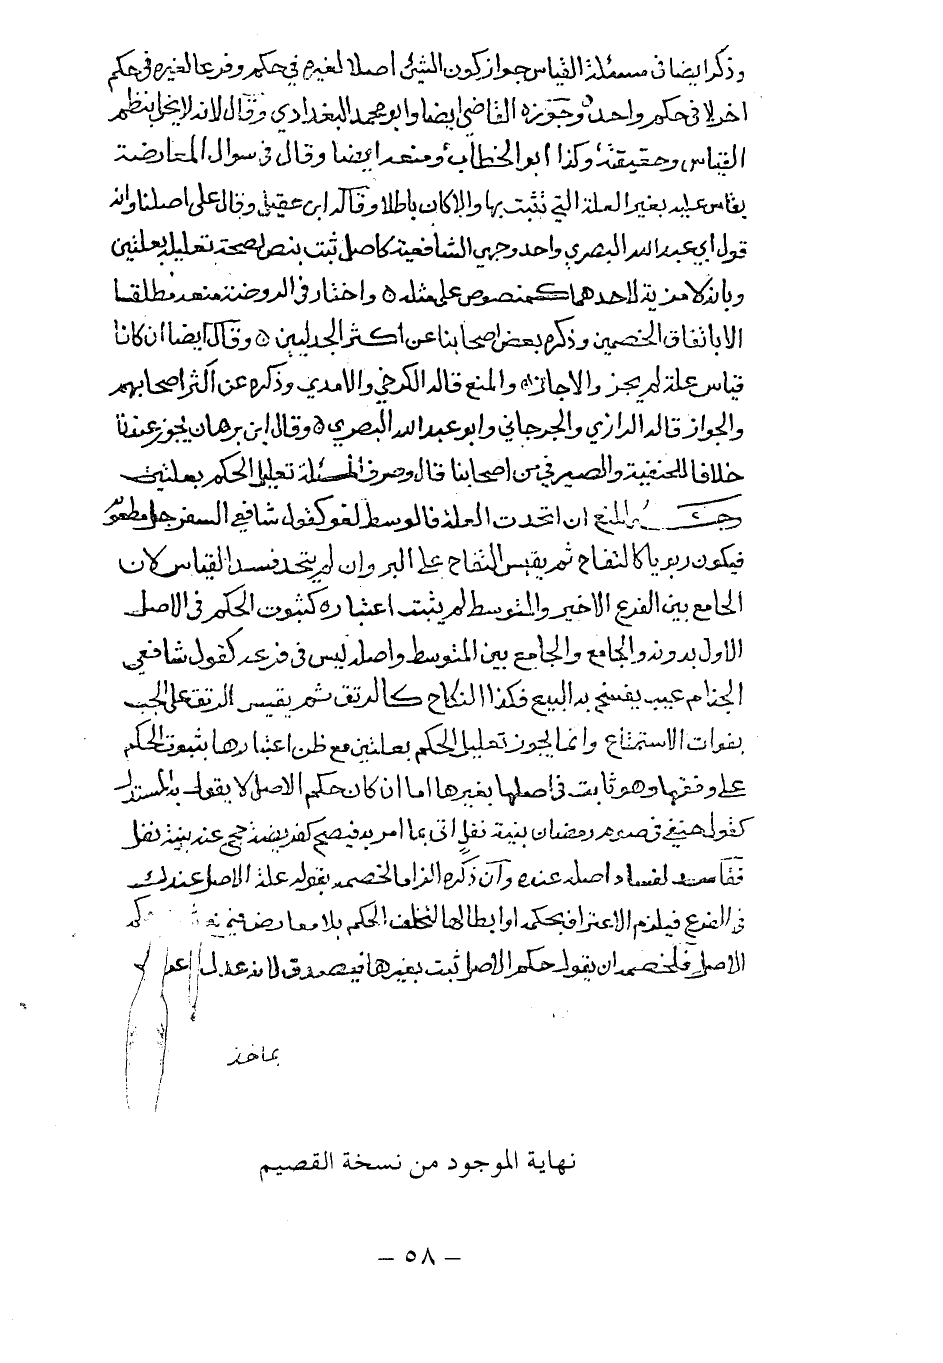 وذكر ايضا في مسئلة القياس جواز كون الشئ اصلا لغيره في حكم وفرعا لغيره في حكم
اخر لا في حكم واحد وجوزه القاضي ايضا وابو محمد البغدادي وقال لانه لا يخل بنظم
القياس وحقيقته وكذا ابو الخطاب ومنعه ايضا وقال في سوال المعارضة
يقاس عليه بغير العلة التي نثبت بها والا كان باطلا وقاله ابن عقيل وقال على اصلنا وانه
قول ابي عبد الله البصري واحد وجهي الشافعية كاصل ثبت بنص لصحة تعليله بعلتين
وبانه لا مزية لاحدهما كمنصوص على مثله ه واختار في الروضة منعه مطلقا
الا باتفاق الخصمين وذكره بعض اصحابنا عن اكثر الجدليين ه وقال ايضا ان كانا
قياس علة لم يجز والا جاز ه والمنع قاله الكرخي والامدي وذكره عن اكثر اصحابهم
والجواز قاله الرازي والجرجاني وابو عبد الله البصري ه وقال ابن برهان يجوز عندنا
خلافا للحنفية والصيرفي من اصحابنا قال وحرف المسئلة تعليل الحكم بعلتين
المنع ان اتحدت العلة فالوسط لغو كقول شافعي السفرجل مطعوم
فيكون ربويا كالتفاح ثم يقيس التفاح على البر وان لم يتحد فسد القياس لان
الجامع بين الفرع الاخير والمتوسط لم يثبت اعتباره كثبوت الحكم في الاصل
الاول بدونه والجامع والجامع بين المتوسط واصله ليس في فرعه كقول شافعي
الجذام عيب يفسخ به البيع فكذا النكاح كالرتق ثم يقيس الرتق على الجب
بفوات الاستمتاع وانما يجوز تعليل الحكم بعلتين مع ظن اعتبارها بثبوت الحكم
على وفقها وهو ثابت في اصلها بغيرها اما ان كان حكم الاصل لا يقول به المستدل
كقول حنفي في صوم رمضان بنية نفل اتى بما امر به فيصح كفريضة حج عنده بنية نفل
ففاسد لفساد اصله عنده وان ذكره الزاما لخصمه بقوله علة الاصل عندك
في الفرع فيلزم الاعتراف بحكمه او ابطالها لتخلف الحكم بلا معارض
الاصل فلخصمه ان يقول حكم الاصل ثبت بغيرها فيصدق لانه عدل
بماخذ
نهاية الموجود من نسخة القصيم
– ٥٨ –